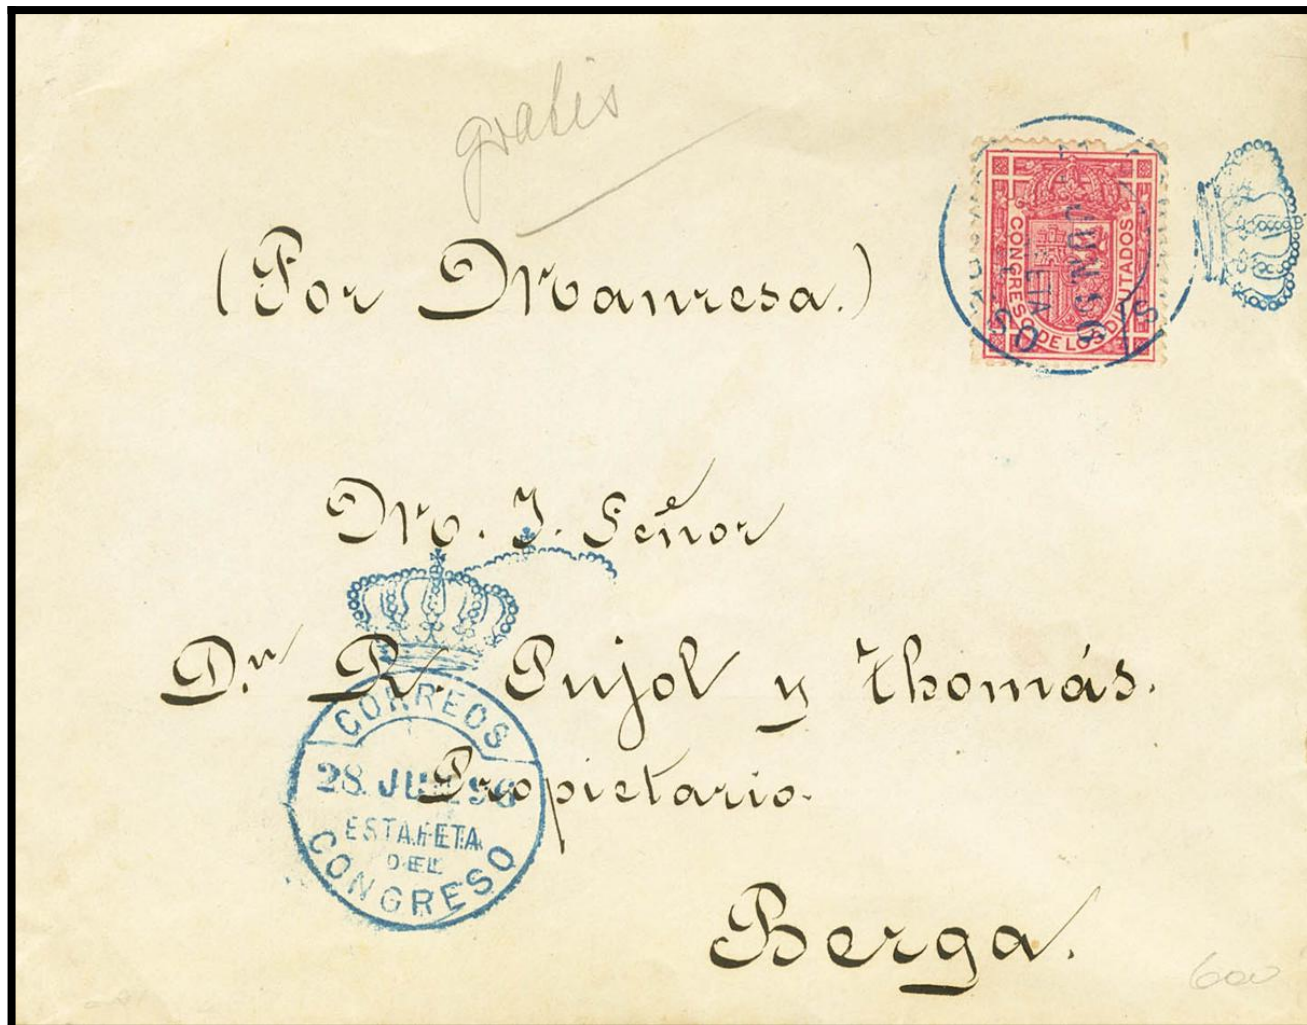 gratis
(Por Manresa.)
CONGRESO DE LOS DIPUTADOS
M. I. Señor
Dn R. Pujol y Thomás.
Propietario.
CORREOS
28 JUN 96
ESTAFETA
DEL
CONGRESO
Berga.
600